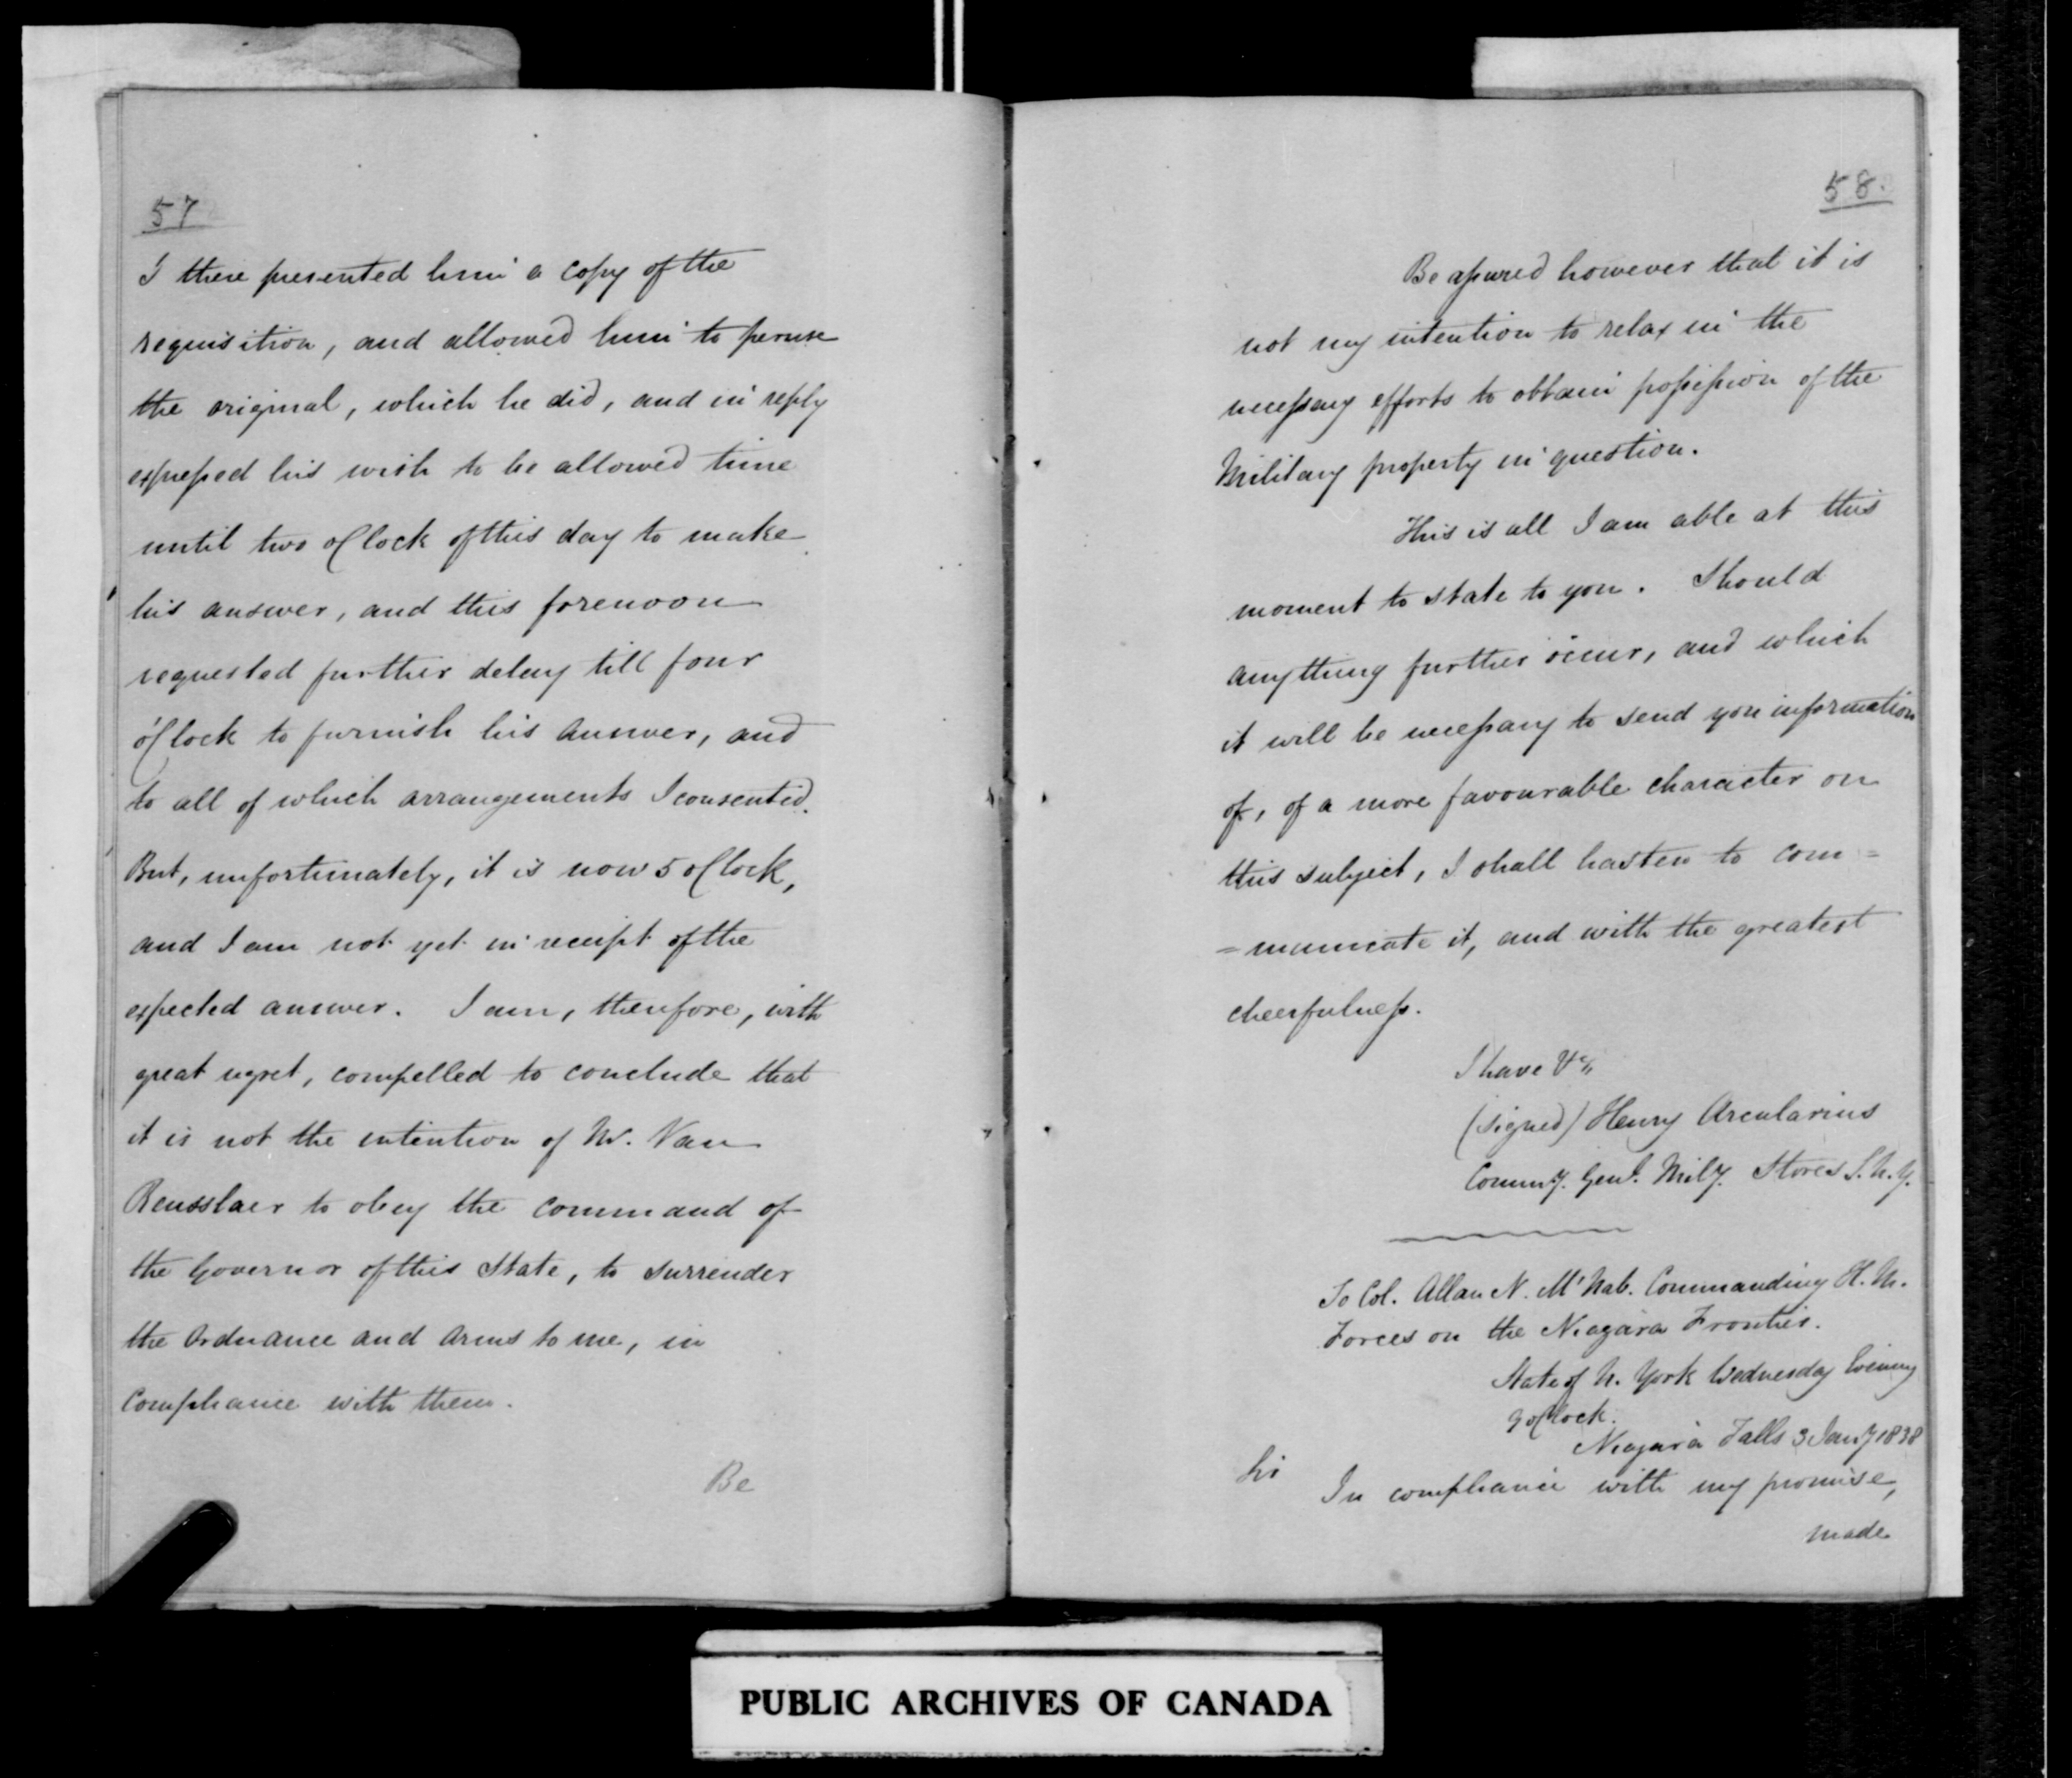 57
I there presented him a copy of the
requisition, and allowed him to peruse
the original, which he did, and in reply
expressed his wish to be allowed time
until two oClock of this day to make
his answer, and this forenoon
requested further delay till four
o'Clock to furnish his answer, and
to all of which arrangements I consented.
But, unfortunately, it is now 5 oClock,
and I am not yet in receipt of the
expected answer. I am, therefore, with
great regret, compelled to conclude that
it is not the intention of Mr. Van
Rensslaer to obey the command of
the Governor of this State, to surrender
the Ordnance and Arms to me, in
compliance with them.
Be
58.
Be assured however that it is
not my intention to relax in the
necessary efforts to obtain possession of the
Military property in question.
This is all I am able at this
moment to state to you. Should
anything further occur, and which
it will be necessary to send you information
of, of a more favourable character on
this subject, I shall hasten to com=
=municate it, and with the greatest
cheerfulness.
I have &c
(signed) Henry Arcularius
Commy. Genl. Mily. Stores S.N.Y.
To Col. Allan N. McNab. Commanding H.M.
Forces on the Niagara Frontier.
State of N. York Wednesday Evening
9 oClock.
Niagara Falls 3 Jany 1838
Sir
In compliance with my promise,
made
PUBLIC ARCHIVES OF CANADA